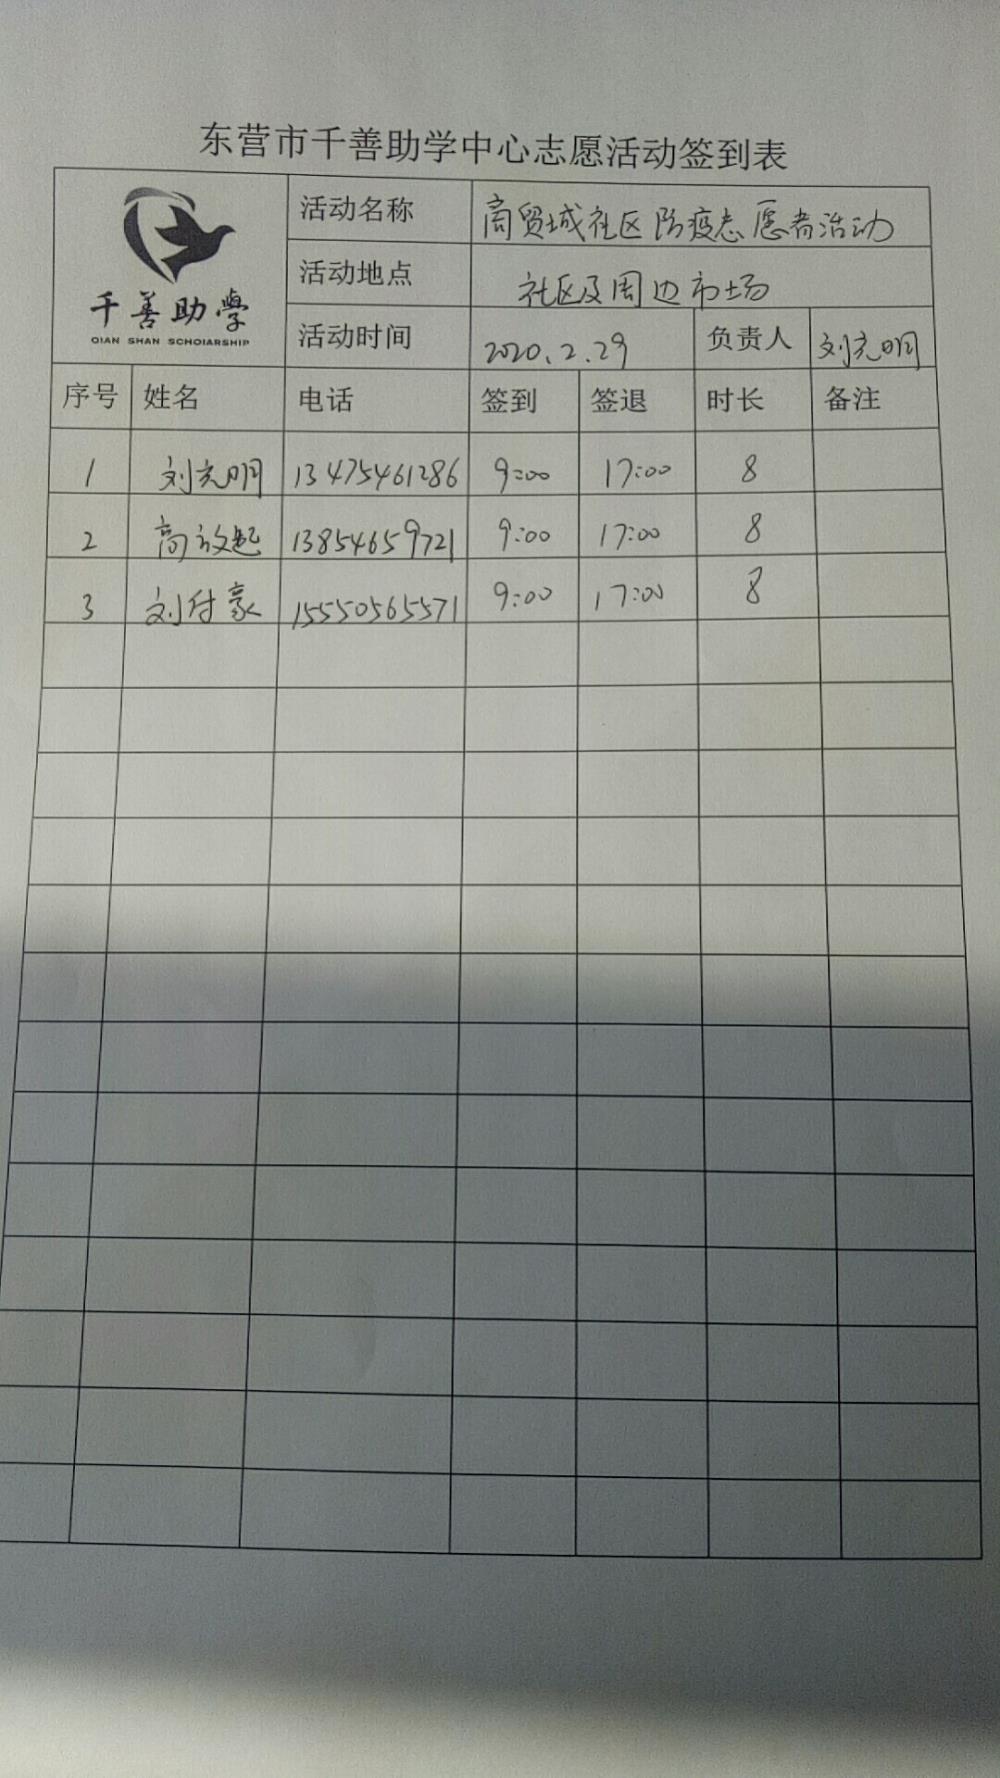 东营市千善助学中心志愿活动签到表
千善助學
QIAN SHAN SCHOIARSHIP
活动名称 商贸城社区防疫志愿者活动
活动地点 社区及周边市场
活动时间 2020.2.29 负责人 刘元明
序号 姓名 电话 签到 签退 时长 备注
1 刘元明 13475461286 9:00 17:00 8
2 高放起 13854659721 9:00 17:00 8
3 刘付豪 15550565571 9:00 17:00 8